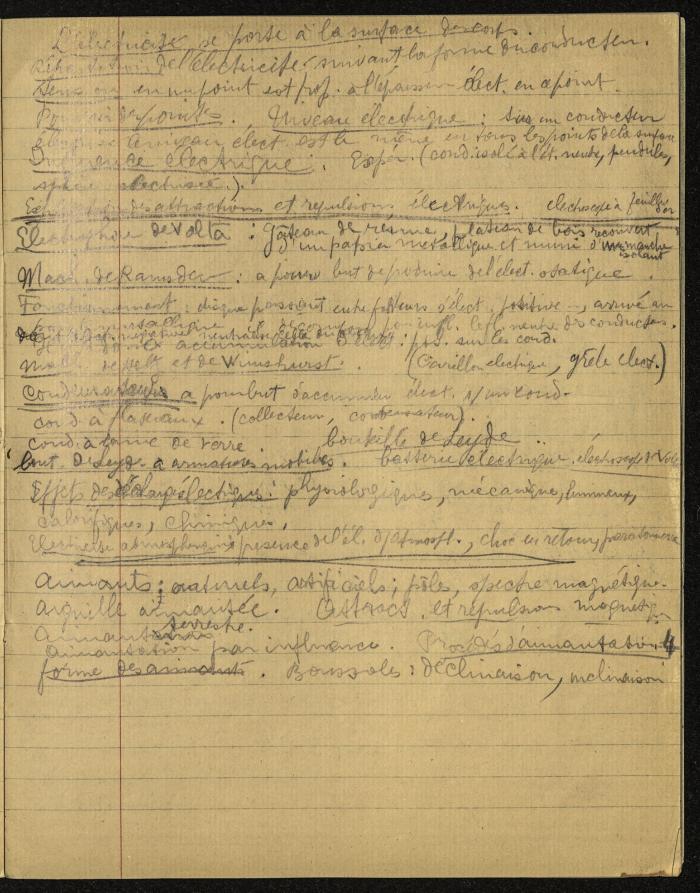 L'électricité se porte à la surface des corps.
de l'électricité suivant la forme du conducteur.
en un point est prop. à l'épaisseur élect. en ce point.
Pouvoir des pointes. Niveau électrique : sur un conducteur
niveau élect. est le même en tous les points de la surface
Influence électrique. Exper. (cond. isolé à l'ét. neutre, pendules,
sphère électrisée).
des attractions et répulsions électriques. électroscope à feuilles d'or
Electrophore de Volta : gâteau de résine, plateau de bois recouvert
d'un papier métallique et muni d'un manche
isolant
Mach. de Ramsden : a pour but de produire de l'élect. statique.
Fonctionnement : disque passant entre frotteurs s'élect. positive, arrivé au
infl. le fl. neutre des conducteurs.
accumulation d'élect. pos. sur les cond.
et de Wimshurst. (Carillon électrique, grêle élect.)
Condensateurs a pour but d'accumuler élect. s/ un cond.
cond. à plateaux. (collecteur, condensateur).
cond. à lame de verre. bouteille de Leyde
bout. de Leyde à armatures mobiles. batterie électrique. électroscope de Volta
Effets des électriques : physiologiques, mécanique, lumineux,
calorifiques, chimiques.
Electricité atmosphérique présence de l'él. ds atmosph., choc en retour, paratonnerre
Aimants ; naturels, artificiels ; pôles, spectre magnétique.
aiguille aimantée. Attract. et répulsions magnétiq.
terrestre.
Aimantation par influence. Procédés d'aimantation. 4
forme des aimants. Boussoles : déclinaison, inclinaison